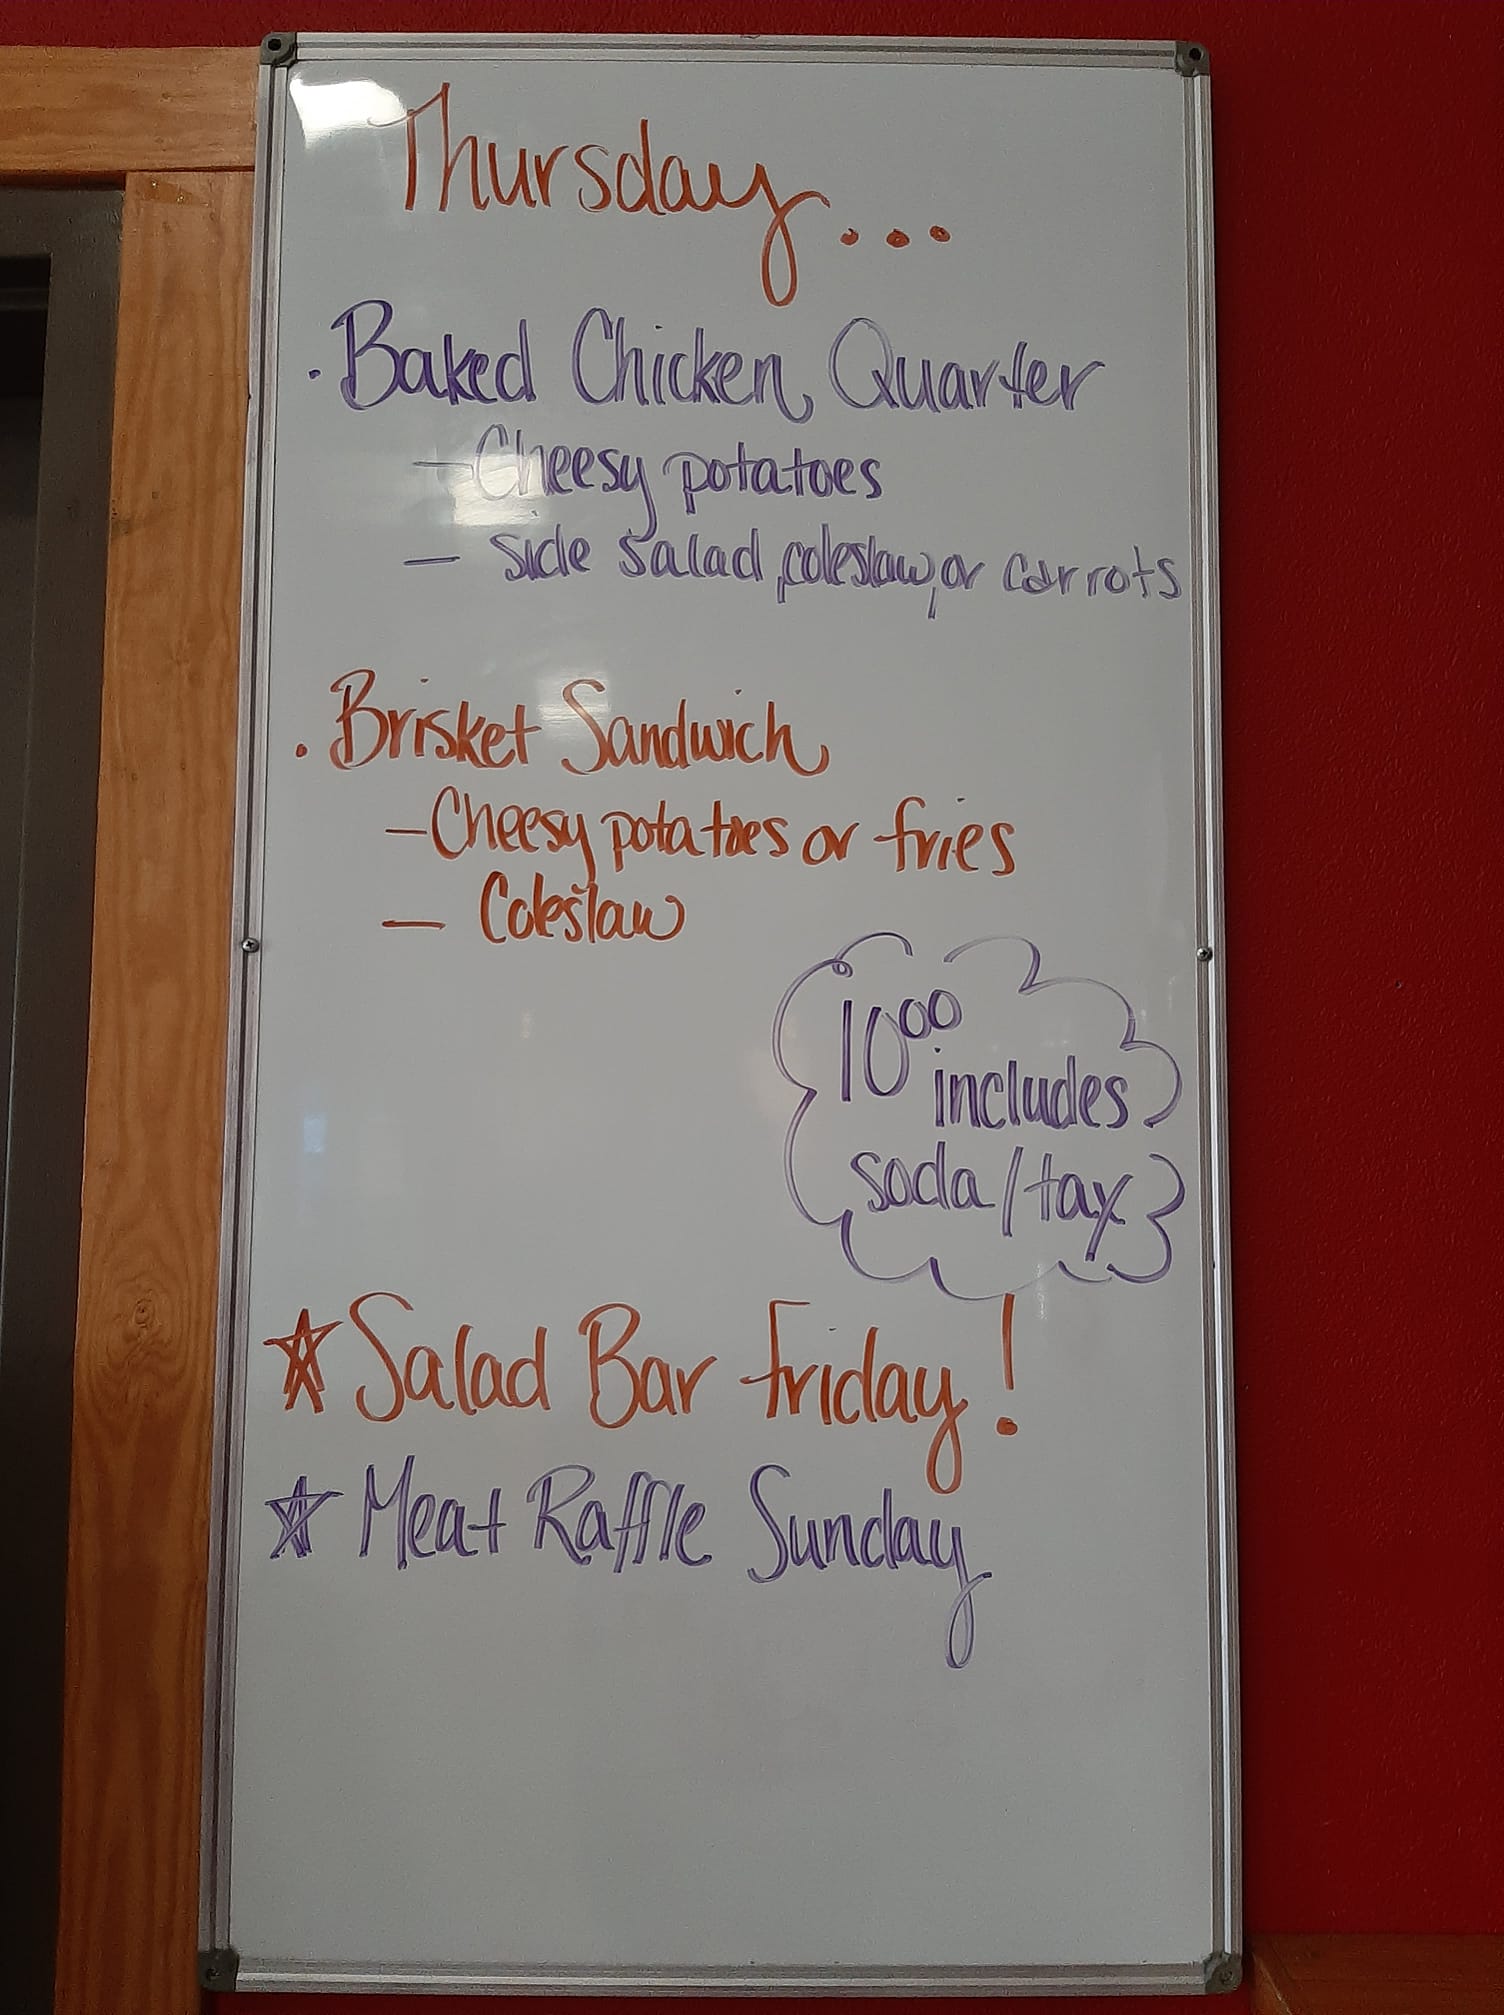 Thursday...
· Baked Chicken Quarter
- Cheesy potatoes
- side salad, coleslaw, or carrots
· Brisket Sandwich
- Cheesy potatoes or fries
- Coleslaw
10⁰⁰
includes
soda/tax
☆ Salad Bar Friday!
☆ Meat Raffle Sunday